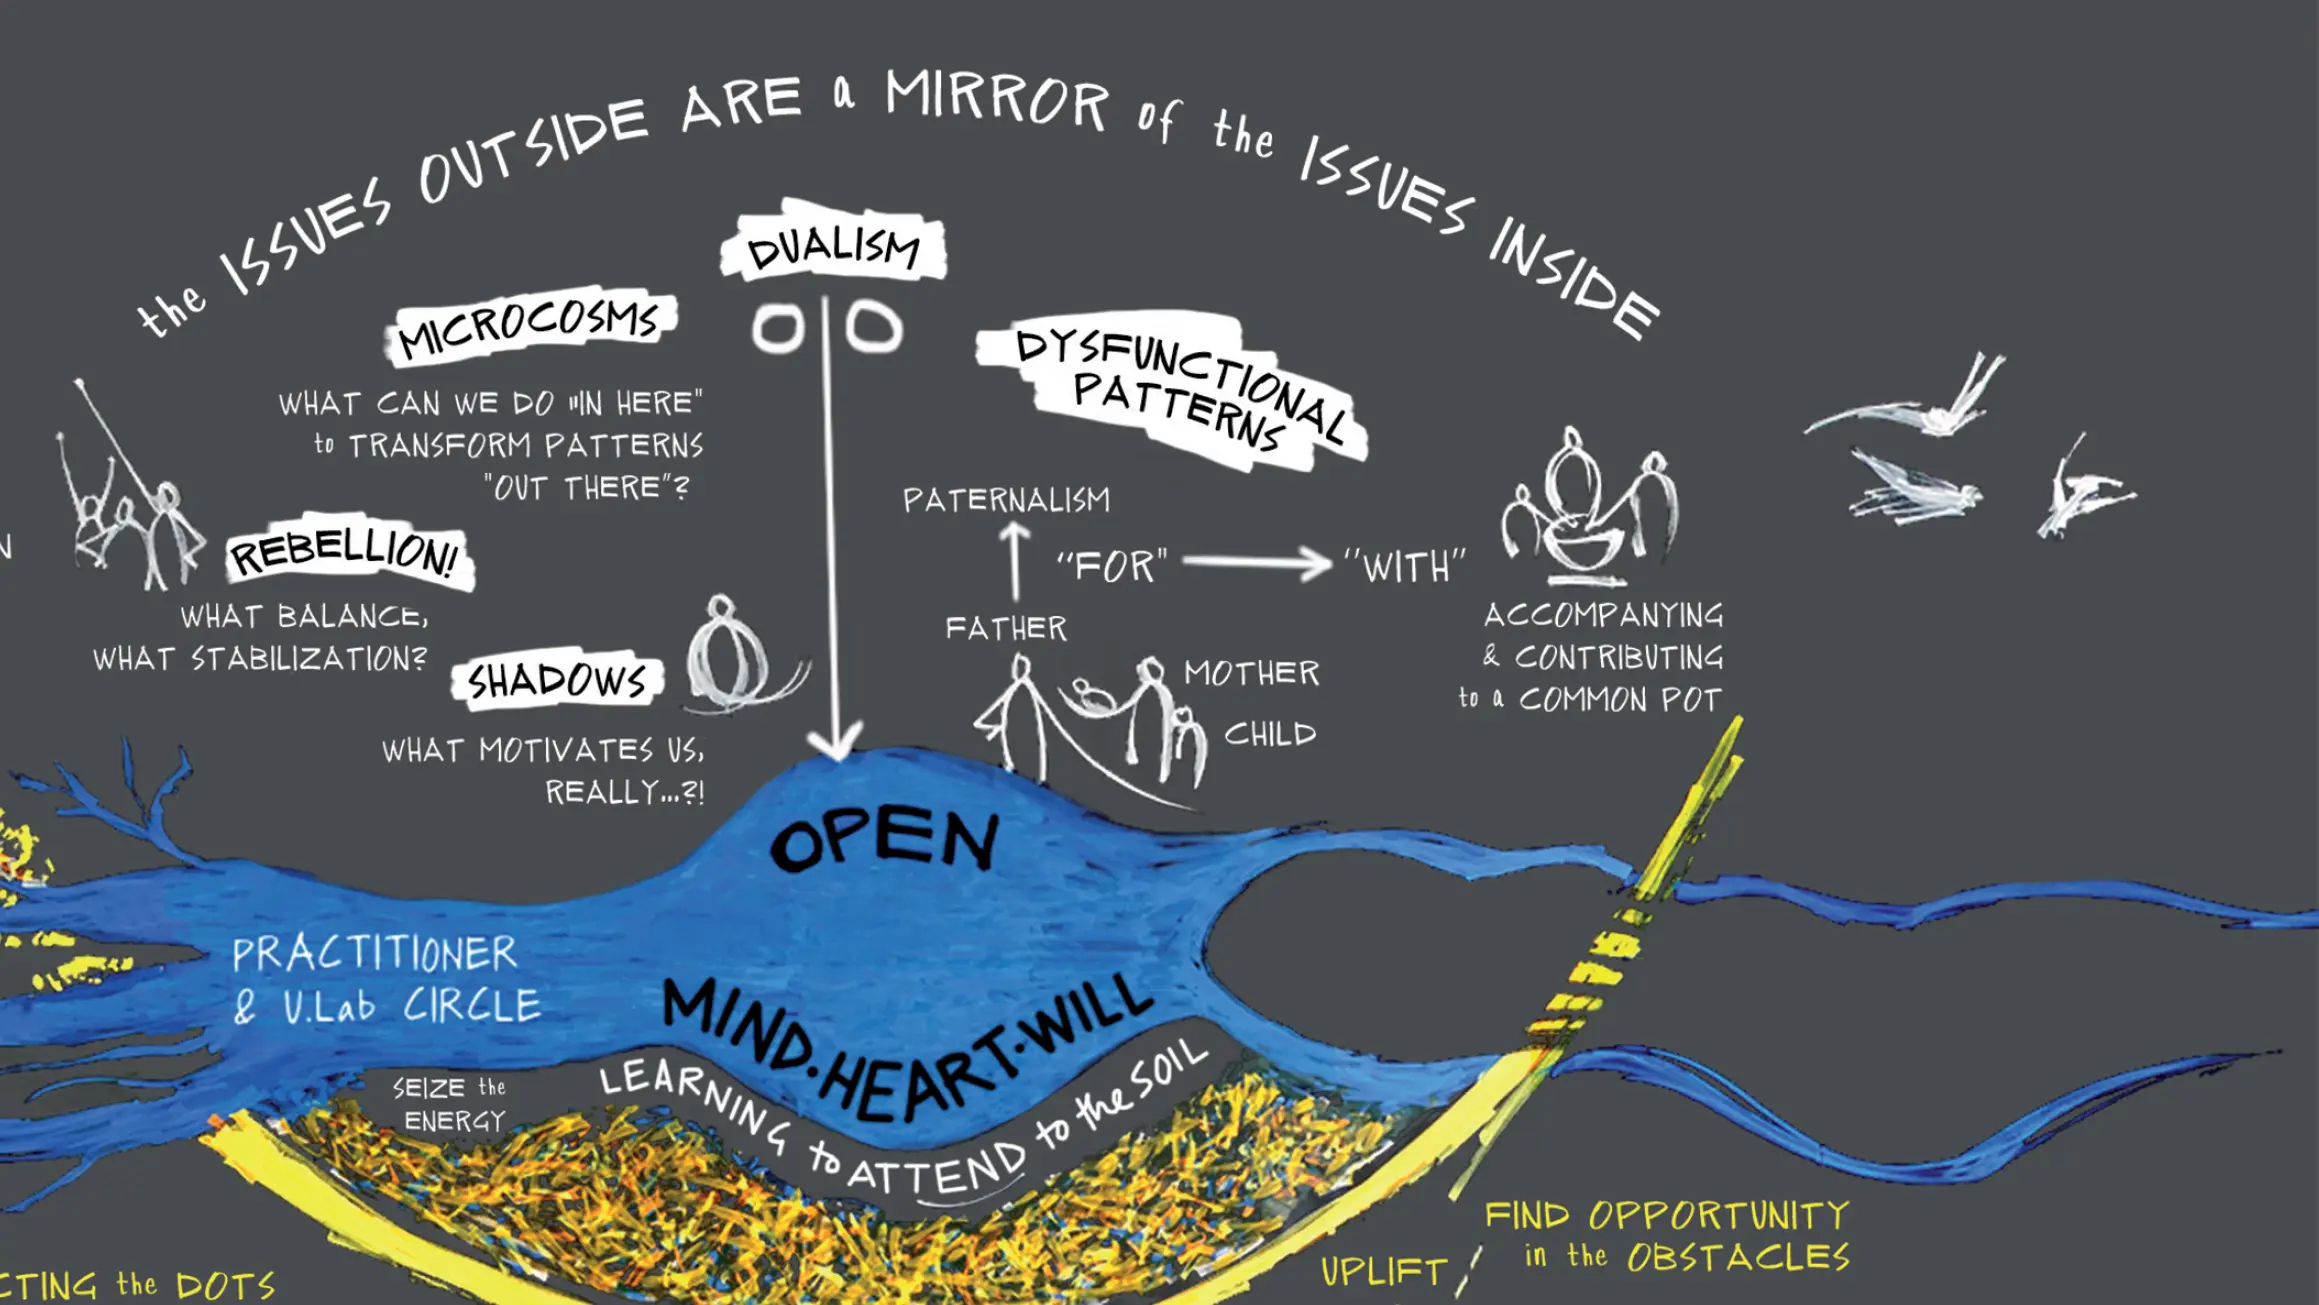 the ISSUES OUTSIDE ARE a MIRROR of the ISSUES INSIDE
DUALISM
MICROCOSMS
WHAT CAN WE DO "IN HERE"
to TRANSFORM PATTERNS
"OUT THERE"?
REBELLION!
WHAT BALANCE,
WHAT STABILIZATION?
SHADOWS
WHAT MOTIVATES US,
REALLY...?!
DYSFUNCTIONAL
PATTERNS
PATERNALISM
"FOR"
"WITH"
FATHER
MOTHER
CHILD
ACCOMPANYING
& CONTRIBUTING
to a COMMON POT
OPEN
MIND.HEART.WILL
PRACTITIONER
& U.Lab CIRCLE
SEIZE the
ENERGY
LEARNING to ATTEND to the SOIL
FIND OPPORTUNITY
in the OBSTACLES
UPLIFT
CTING the DOTS